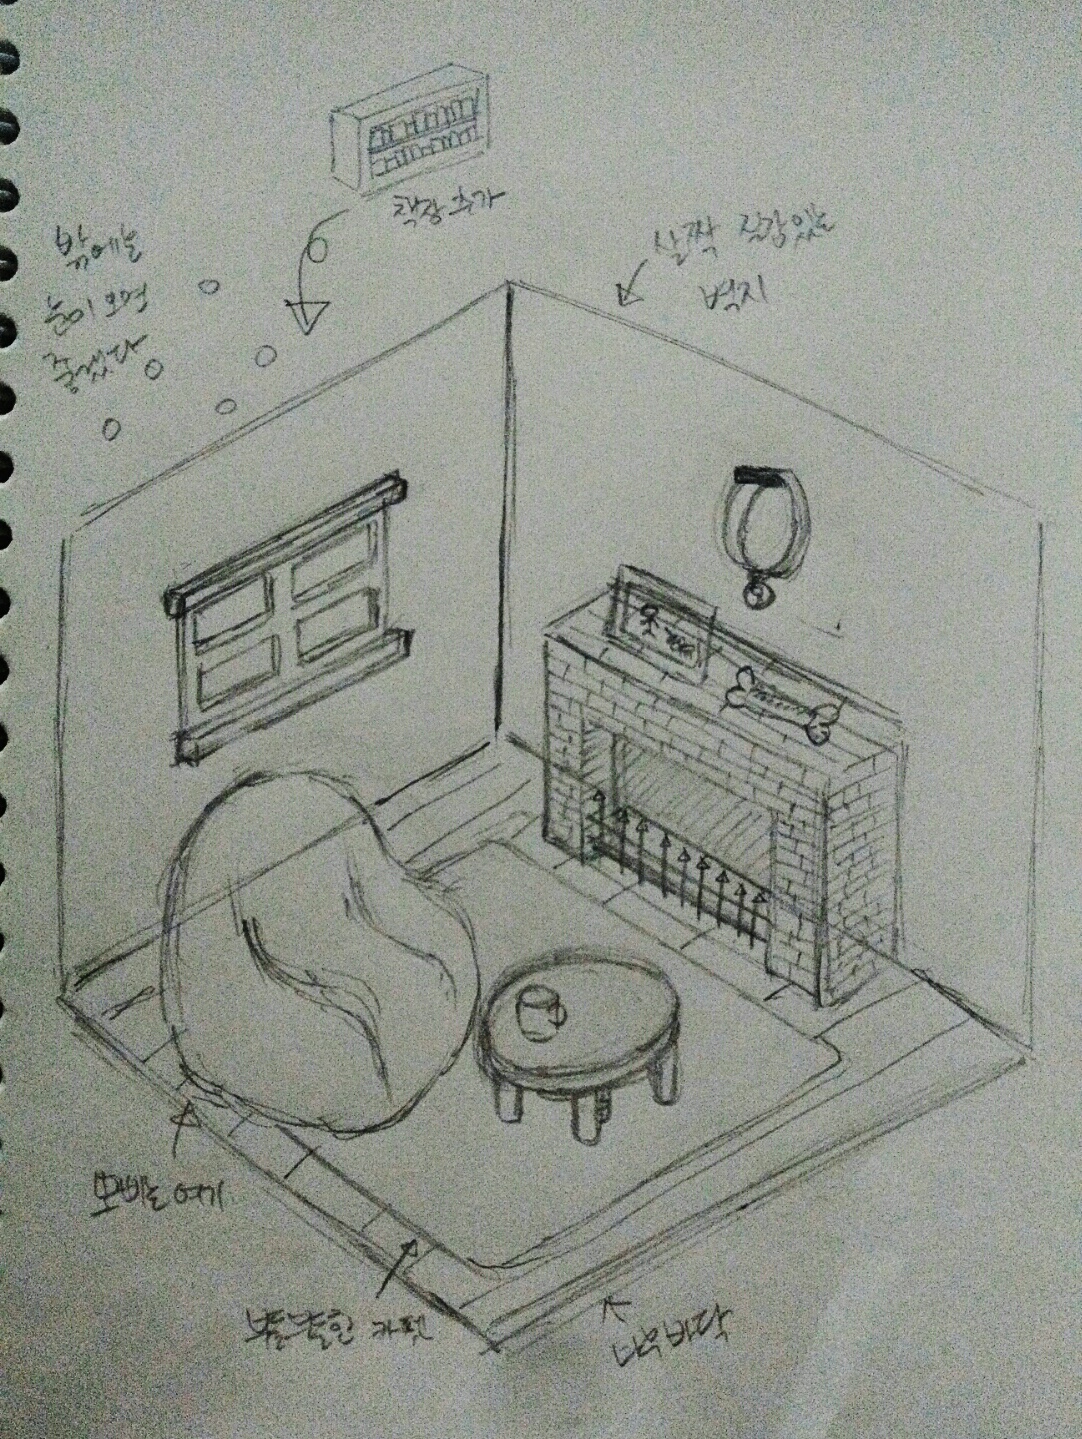 책장 추가
밖에는
눈이 오면
좋겠다
살짝 질감있는
벽지
모삐는 여기
복슬복슬한 카펫
나무바닥